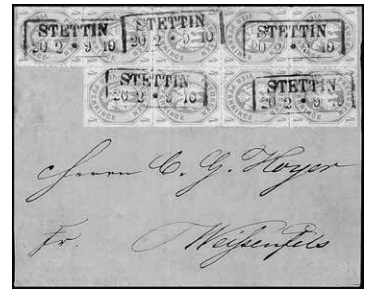 STETTIN
20 2 • 9 - 10
STETTIN
20 2 • 9 - 10
STETTIN
20 2 • 9 10
STETTIN
20 2 • 9 - 10
STETTIN
20 2 • 9 10
Herrn C. G. Hoyer
Fr. Weißenfels